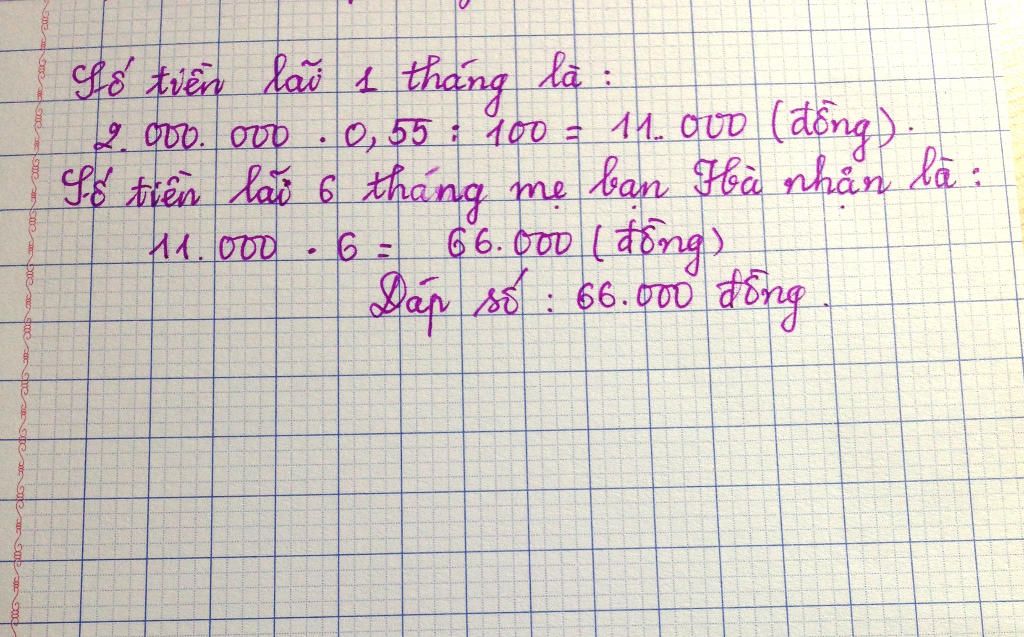 Số tiền lãi 1 tháng là :
2.000.000 . 0,55 : 100 = 11.000 (đồng).
Số tiền lãi 6 tháng mẹ bạn Hà nhận là :
11.000 . 6 = 66.000 (đồng)
Đáp số : 66.000 đồng.